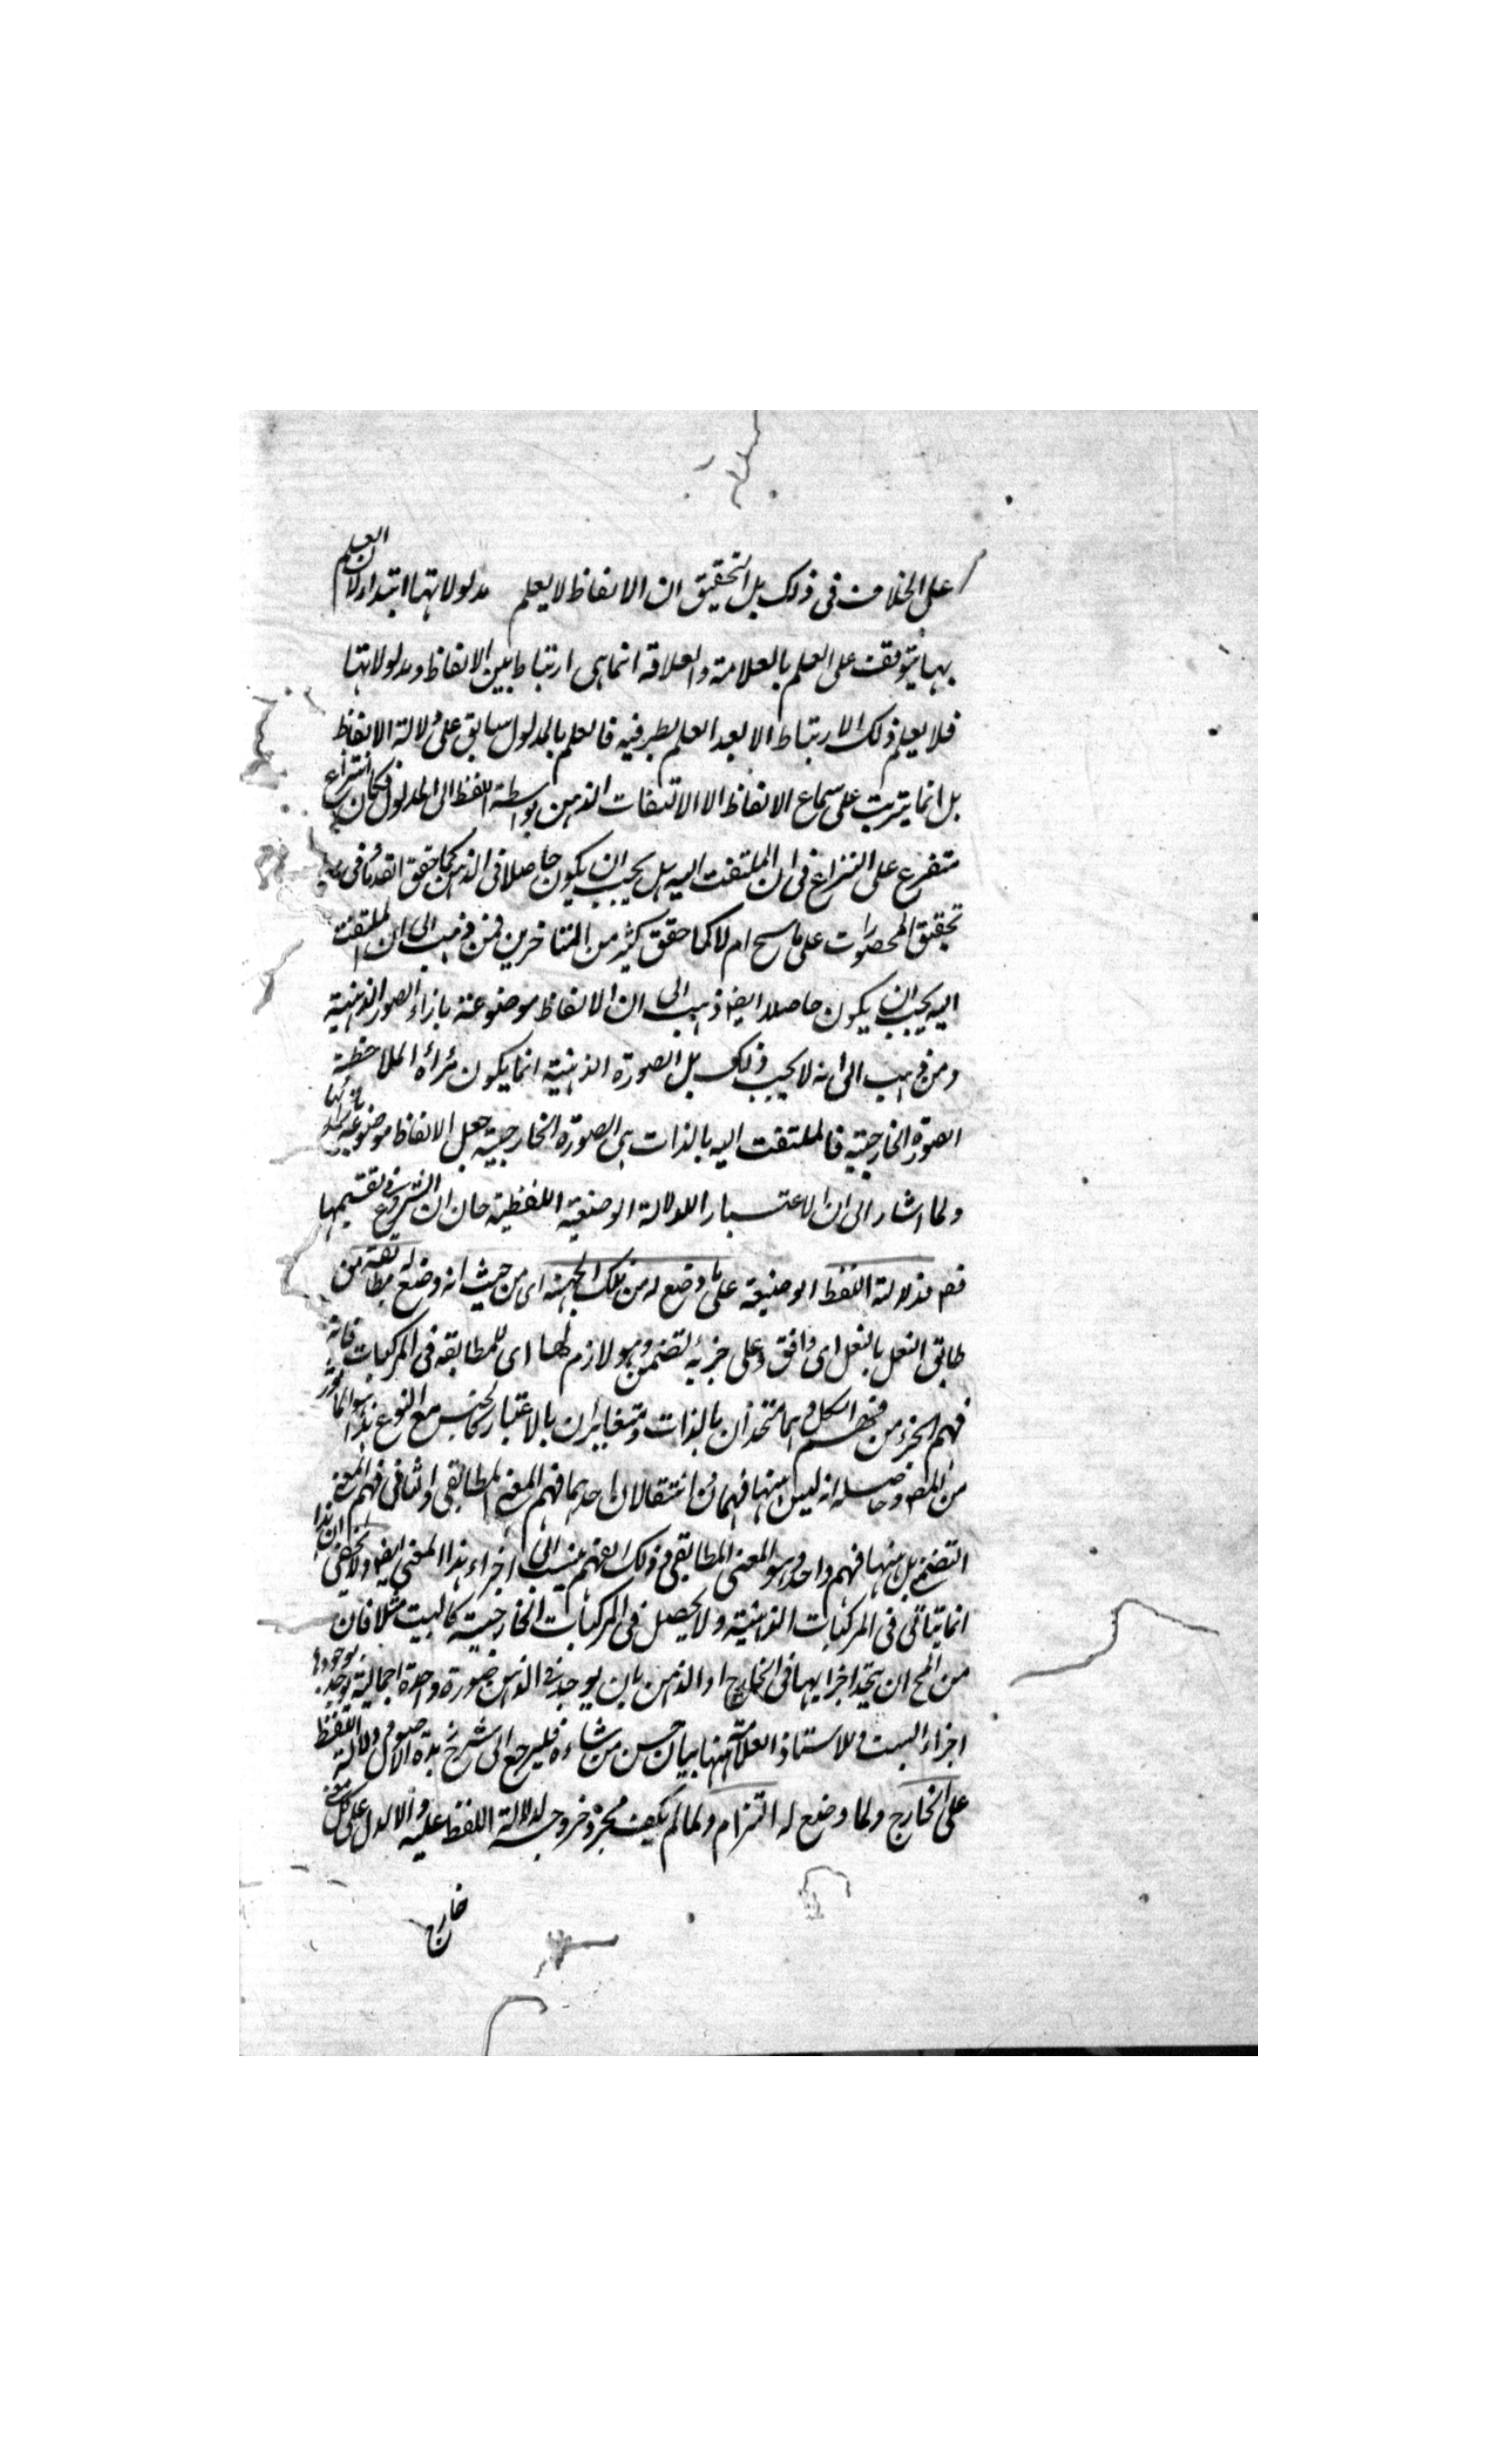 على الخلاف فى ذلك بل التحقيق ان الالفاظ لا يعلم مدلولاتها ابتداء لان العلم
بها يتوقف على العلم بالعلامة والعلاقة انما هى ارتباط بين الالفاظ ومدلولاتها
فلا يعلم ذلك الارتباط الا بعد العلم بطرفيه فالعلم بالمدلول سابق على دلالة الالفاظ
بل انما يترتب على سماع الالفاظ الا الالتفات الذهن بواسطة اللفظ الى المدلول فكان النزاع
متفرع على النزاع فى ان الملتفت اليه هل يجب ان يكون حاصلا فى الذهن كما حقق القدماء فى
تحقيق المحصورات على ما سيح ام لا كما حقق كثير من المتاخرين فمن ذهب الى ان الملتفت
اليه يجب ان يكون حاصلا ايضا ذهب الى ان الالفاظ موضوعة بازاء الصور الذهنية
ومن ذهب الى انه لا يجب ذلك بل الصورة الذهنية انما يكون مرأة لملاحظة
الصورة الخارجية فالملتفت اليه بالذات هى الصورة الخارجية جعل الالفاظ موضوعة بازائها
ولما اشار الى ان الاعتبار للدلالة الوضعية اللفظية حان ان الشروع فى تقسيمها
فدلالة اللفظ الوضعية على ما وضع له من تلك الجهة اى من حيث انه وضع له مطابقة من
طابق النعل بالنعل اى وافق وعلى جزئه تضمن وهو لازم لها اى للمطابقة فى المركبات فانه
فهم الجزء من فهم الكل وهما متحدان بالذات ومتغايران بالاعتبار كالجنس مع النوع هذا هو الماثور
من المص وحاصله انه ليس منها فهمان وانتقالان احدهما فهم المعنى المطابقى والثانى فهم المعنى
التضمنى بل منها فهم واحد وهو المعنى المطابقى وذلك الفهم ينسب الى اجزاء هذا المعنى ايضا ولا يخفى ان هذا
انما يتاتى فى المركبات الذهنية ولا يحصل فى المركبات الخارجية كالبيت مثلا فان
من المح ان يتحد اجزايها فى الخارج او الذهن بان يوجد فى الذهن صورة واحدة اجمالية يوجد بوجودها
اجزاء البيت وللاستاذ العلامة منها بيان حسن من شاءه فليرجع الى شرح هذه الاصول ودلالة اللفظ
على الخارج ولما وضع له التزام ولما لم يكف مجرد خروجه لدلالة اللفظ عليه والا لدل على كل معنى
خارج